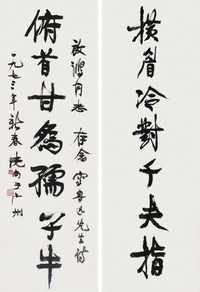 橫眉冷對千夫指
同志 存念 魯迅先生詩
俯首甘為孺子牛
一九七三年新春 於广州